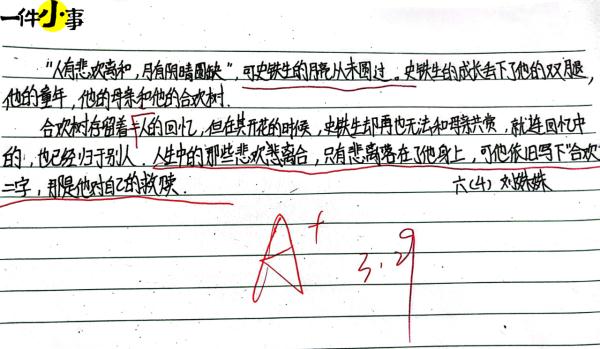 一件小事
"人有悲欢离和,月有阴晴圆缺",可史铁生的月亮从未圆过。史铁生的成长丢下了他的双腿,
他的童年,他的母亲和他的合欢树.
合欢树存留着人的回忆,但在其开花的时候,史铁生却再也无法和母亲共赏,就连回忆中
的,也已经归于别人.人生中的那些悲欢离合,只有悲离落在了他身上,可他依旧写下"合欢"
二字,那是他对自己的救赎.
六(4) 刘姝姝
A+ 3.29